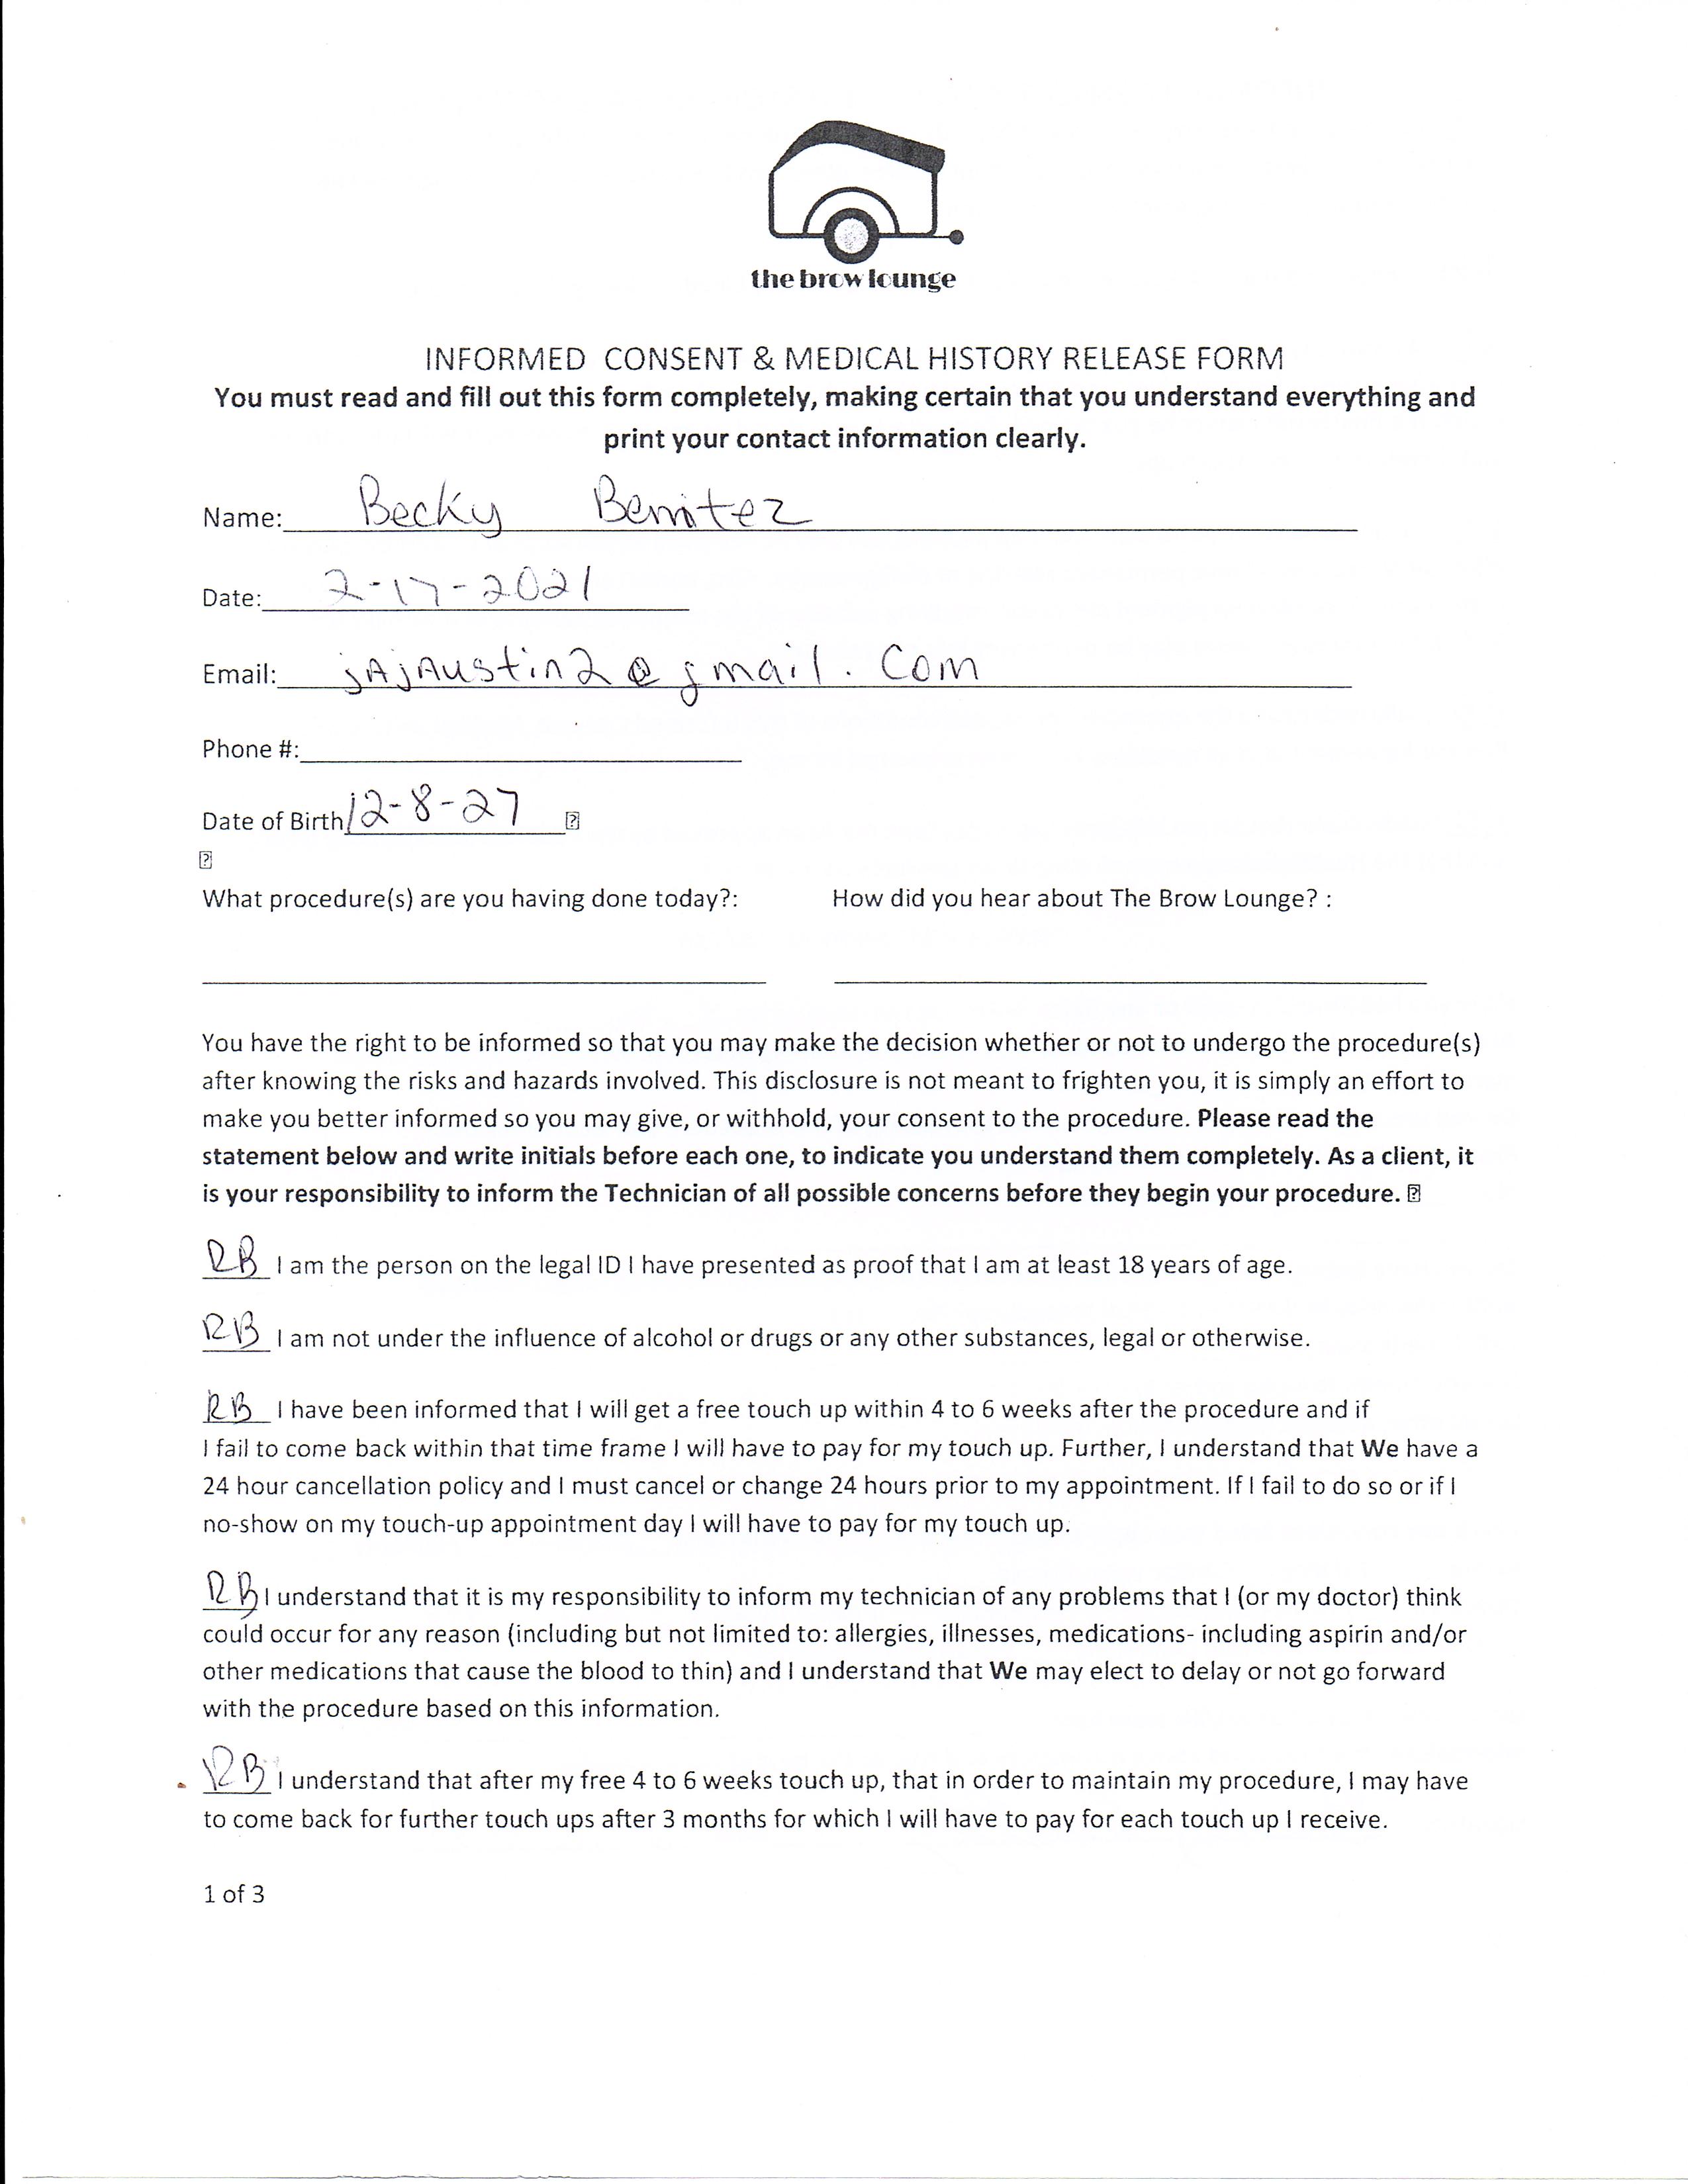 the brow lounge
INFORMED CONSENT & MEDICAL HISTORY RELEASE FORM
You must read and fill out this form completely, making certain that you understand everything and
print your contact information clearly.
Name: Becky Benitez
Date: 2-17-2021
Email: jAjAustin2@gmail.com
Phone #:
Date of Birth 12-8-27
What procedure(s) are you having done today?: How did you hear about The Brow Lounge? :
You have the right to be informed so that you may make the decision whether or not to undergo the procedure(s)
after knowing the risks and hazards involved. This disclosure is not meant to frighten you, it is simply an effort to
make you better informed so you may give, or withhold, your consent to the procedure. Please read the
statement below and write initials before each one, to indicate you understand them completely. As a client, it
is your responsibility to inform the Technician of all possible concerns before they begin your procedure.
RB I am the person on the legal ID I have presented as proof that I am at least 18 years of age.
RB I am not under the influence of alcohol or drugs or any other substances, legal or otherwise.
RB I have been informed that I will get a free touch up within 4 to 6 weeks after the procedure and if
I fail to come back within that time frame I will have to pay for my touch up. Further, I understand that We have a
24 hour cancellation policy and I must cancel or change 24 hours prior to my appointment. If I fail to do so or if I
no-show on my touch-up appointment day I will have to pay for my touch up.
RB I understand that it is my responsibility to inform my technician of any problems that I (or my doctor) think
could occur for any reason (including but not limited to: allergies, illnesses, medications- including aspirin and/or
other medications that cause the blood to thin) and I understand that We may elect to delay or not go forward
with the procedure based on this information.
RB I understand that after my free 4 to 6 weeks touch up, that in order to maintain my procedure, I may have
to come back for further touch ups after 3 months for which I will have to pay for each touch up I receive.
1 of 3